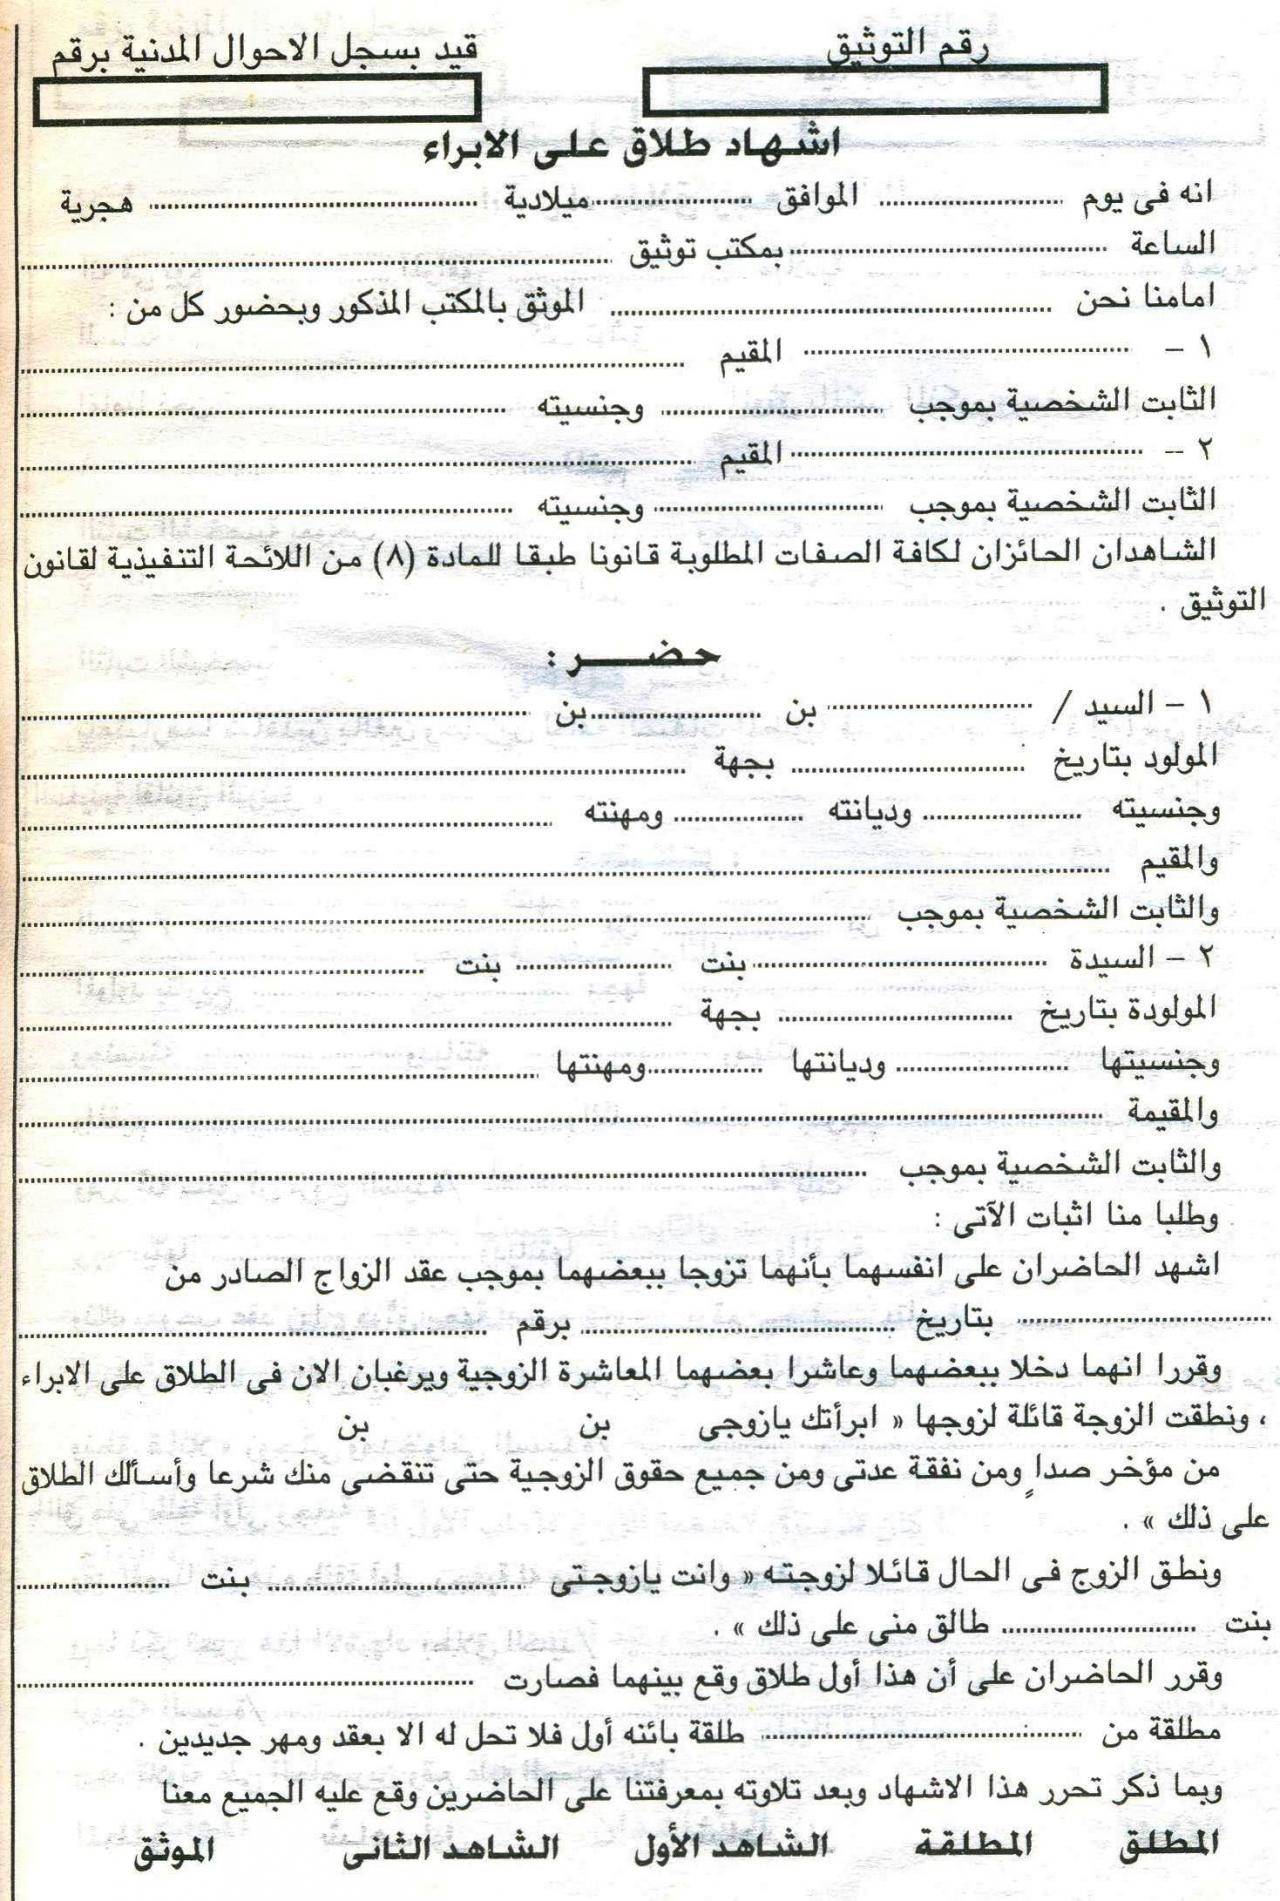 رقم التوثيق قيد بسجل الاحوال المدنية برقم
اشهاد طلاق على الابراء
انه فى يوم ........................ الموافق ........................ ميلادية ........................ هجرية
الساعة ........................ بمكتب توثيق ........................
امامنا نحن ........................ الموثق بالمكتب المذكور وبحضور كل من :
١ - ........................ المقيم ........................
الثابت الشخصية بموجب ........................ وجنسيته ........................
٢ - ........................ المقيم ........................
الثابت الشخصية بموجب ........................ وجنسيته ........................
الشاهدان الحائزان لكافة الصفات المطلوبة قانونا طبقا للمادة (٨) من اللائحة التنفيذية لقانون
التوثيق .
حضـــر :
١ - السيد / ........................ بن ........................ بن ........................
المولود بتاريخ ........................ بجهة ........................
وجنسيته ........................ وديانته ........................ ومهنته ........................
والمقيم ........................
والثابت الشخصية بموجب ........................
٢ - السيدة ........................ بنت ........................ بنت ........................
المولودة بتاريخ ........................ بجهة ........................
وجنسيتها ........................ وديانتها ........................ ومهنتها ........................
والمقيمة ........................
والثابت الشخصية بموجب ........................
وطلبا منا اثبات الآتى :
اشهد الحاضران على انفسهما بأنهما تزوجا ببعضهما بموجب عقد الزواج الصادر من
........................ بتاريخ ........................ برقم ........................
وقررا انهما دخلا ببعضهما وعاشرا بعضهما المعاشرة الزوجية ويرغبان الان فى الطلاق على الابراء
، ونطقت الزوجة قائلة لزوجها « ابرأتك يازوجى بن بن
من مؤخر صدا ومن نفقة عدتى ومن جميع حقوق الزوجية حتى تنقضى منك شرعا وأسألك الطلاق
على ذلك » .
ونطق الزوج فى الحال قائلا لزوجته « وانت يازوجتى ........................ بنت ........................
بنت ........................ طالق منى على ذلك » .
وقرر الحاضران على أن هذا أول طلاق وقع بينهما فصارت ........................
مطلقة من ........................ طلقة بائنه أول فلا تحل له الا بعقد ومهر جديدين .
وبما ذكر تحرر هذا الاشهاد وبعد تلاوته بمعرفتنا على الحاضرين وقع عليه الجميع معنا
المطلق المطلقة الشاهد الأول الشاهد الثانى الموثق